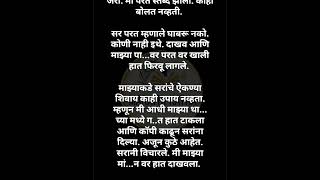 जरा. मी परत स्तब्ध झाली. काही
बोलत नव्हती.
सर परत म्हणाले घाबरू नको.
कोणी नाही इथे. दाखव आणि
माझ्या पा...वर परत वर खाली
हात फिरवू लागले.
माझ्याकडे सरांचे ऐकण्या
शिवाय काही उपाय नव्हता.
म्हणून मी आधी माझ्या था...
च्या मध्ये ग..त हात टाकला
आणि कॉपी काढून सरांना
दिल्या. अजून कुठे आहेत.
सरानी विचारले. मी माझ्या
मां...न वर हात दाखवला.